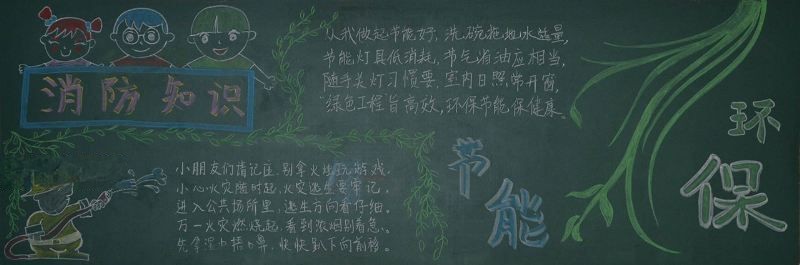 消防知识
从我做起节能好,洗碗拖地水适量,
节能灯具低消耗,节气省油应相当,
随手关灯习惯要,室内日照常开窗,
绿色工程旨高效,环保节能保健康。
小朋友们请记住,别拿火烛玩游戏.
小心火灾随时起,火灾逃生要牢记.
进入公共场所里,逃生方向看仔细.
万一火灾燃烧起,看到浓烟别着急.
先拿湿巾捂口鼻,快快趴下向前移.
节能
环保